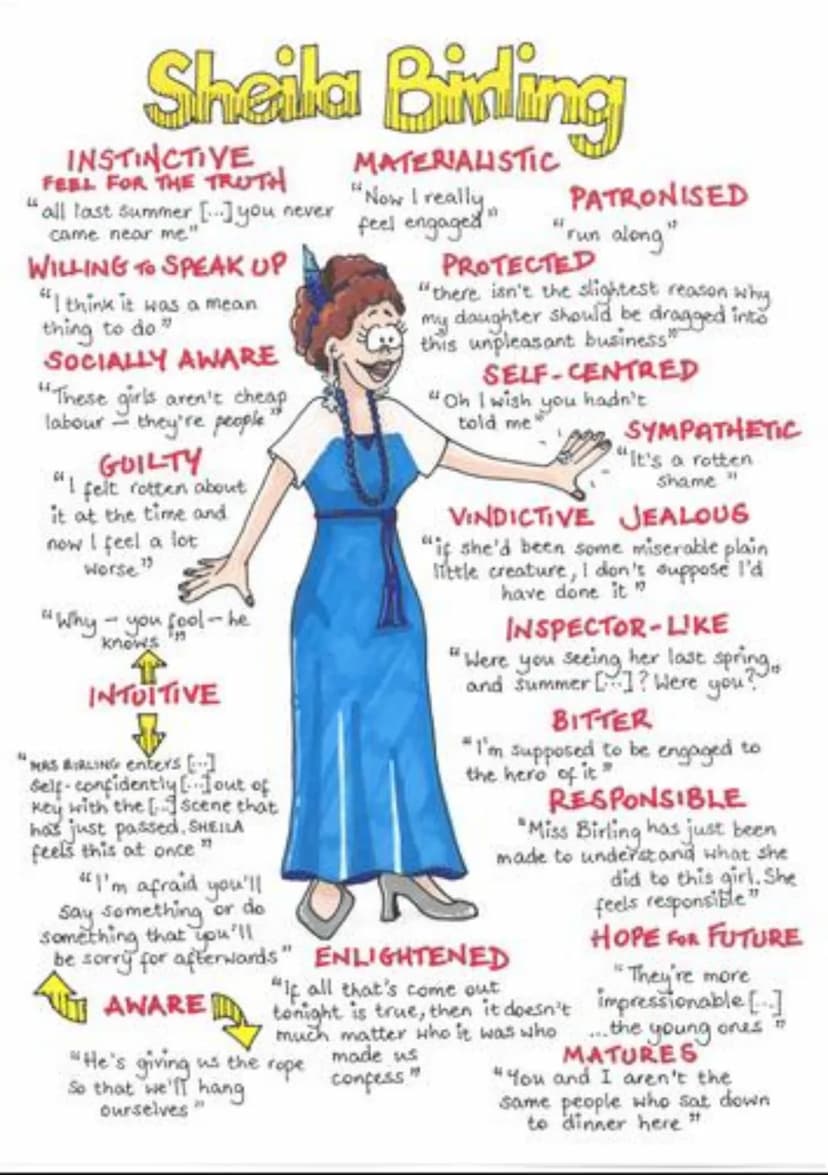 Sheila Birling
INSTINCTIVE
FEEL FOR THE TRUTH
"all last summer [...] you never
came near me"
MATERIALISTIC
"Now I really
feel engaged"
PATRONISED
"run along"
WILLING to SPEAK UP
"I think it was a mean
thing to do"
PROTECTED
"there isn't the slightest reason why
my daughter should be dragged into
this unpleasant business"
SOCIALLY AWARE
"These girls aren't cheap
labour – they're people"
SELF-CENTRED
"Oh I wish you hadn't
told me"
SYMPATHETIC
"It's a rotten
shame"
GUILTY
"I felt rotten about
it at the time and
now I feel a lot
worse"
VINDICTIVE JEALOUS
"if she'd been some miserable plain
little creature, I don't suppose I'd
have done it"
"Why – you fool – he
knows"
INTUITIVE
"MRS BIRLING enters [...]
self-confidently [...] out of
key with the [...] scene that
has just passed. SHEILA
feels this at once"
INSPECTOR-LIKE
"Were you seeing her last spring
and summer [...]? Were you?"
BITTER
"I'm supposed to be engaged to
the hero of it"
RESPONSIBLE
"Miss Birling has just been
made to understand what she
did to this girl. She
feels responsible"
"I'm afraid you'll
say something or do
something that you'll
be sorry for afterwards"
AWARE
"He's giving us the rope
so that we'll hang
ourselves"
ENLIGHTENED
"If all that's come out
tonight is true, then it doesn't
much matter who it was who
made us
confess"
HOPE for FUTURE
"They're more
impressionable [...]
...the young ones"
MATURES
"You and I aren't the
same people who sat down
to dinner here"